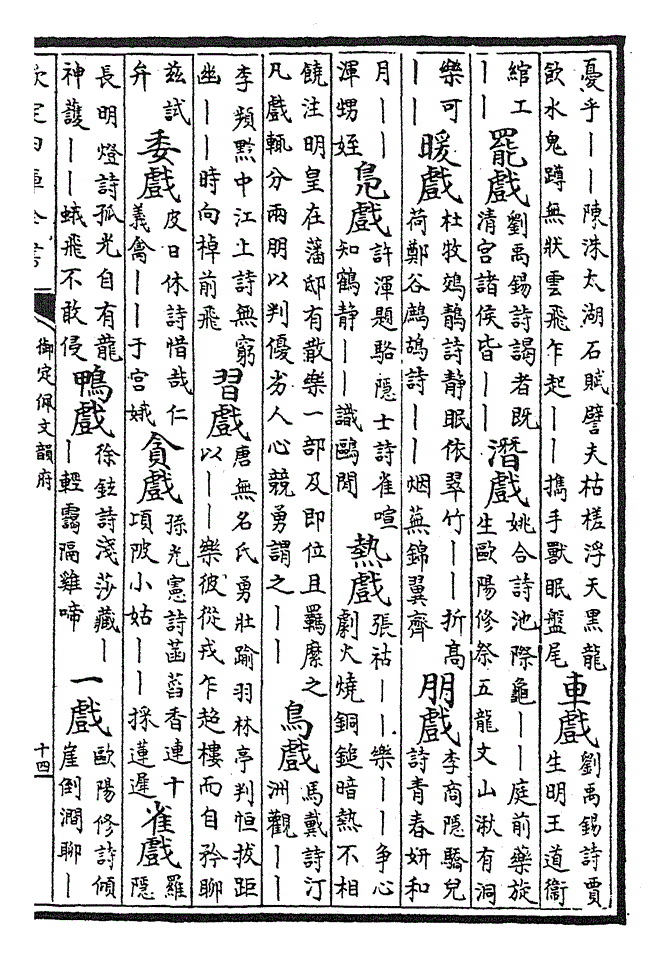 憂乎――陳洙太湖石賦譬夫枯槎浮天黑龍
飲水鬼蹲無狀雲飛乍起――擕手獸眠盤尾
車戲
劉禹錫詩賈
生明王道衞
綰工
――
罷戲
劉禹錫詩謁者既
清宮諸侯皆――
潛戲
姚合詩池際龜――庭前藥旋
生歐陽修祭五龍文山湫有洞
樂可
――
暖戲
杜牧鵁鶄詩靜眠依翠竹――折高
荷鄭谷鷓鴣詩――烟蕪錦翼齊
朋戲
李商隱驕兒
詩青春妍和
月――
渾甥姪
鳧戲
許渾題駱隱士詩雀喧
知鶴静――識鷗閒
熱戲
張祜――樂――争心
劇火燒銅鎚暗熱不相
饒注明皇在藩邸有散樂一部及即位且羈縻之
凡戲輒分兩朋以判優劣人心競勇謂之――
鳥戲
馬戴詩汀
洲觀――
李頻黔中江上詩無窮
幽――時向棹前飛
習戲
唐無名氏勇壯踰羽林亭判恒拔距
以――樂彼從戎乍超樓而自矜聊
兹試
弁
委戲
皮日休詩惜哉仁
義禽――于宮娥
貪戲
孫光憲詩菡萏香連十
項陂小姑――採蓮遲
雀戲
羅
隱
長明燈詩孤光自有龍
神護――蛾飛不敢侵
鴨戲
徐鉉詩淺莎藏―
―輕靄隔雞啼
一戲
歐陽修詩傾
崖倒澗聊―
欽定四庫全書
御定佩文韻府
十四